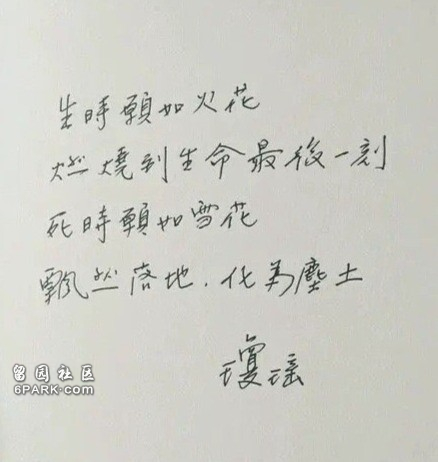 生時願如火花
燃燒到生命最後一刻
死時願如雪花
飄然落地，化為塵土
瓊瑤
留园社区
6PARK.com